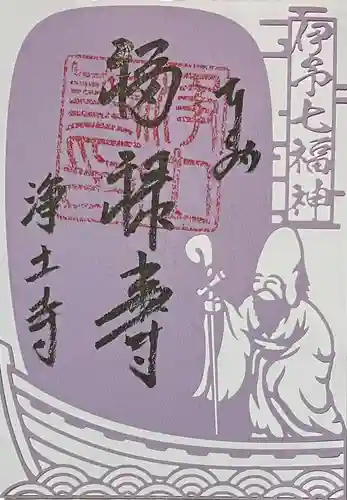 伊予七福神
福禄寿
浄土寺